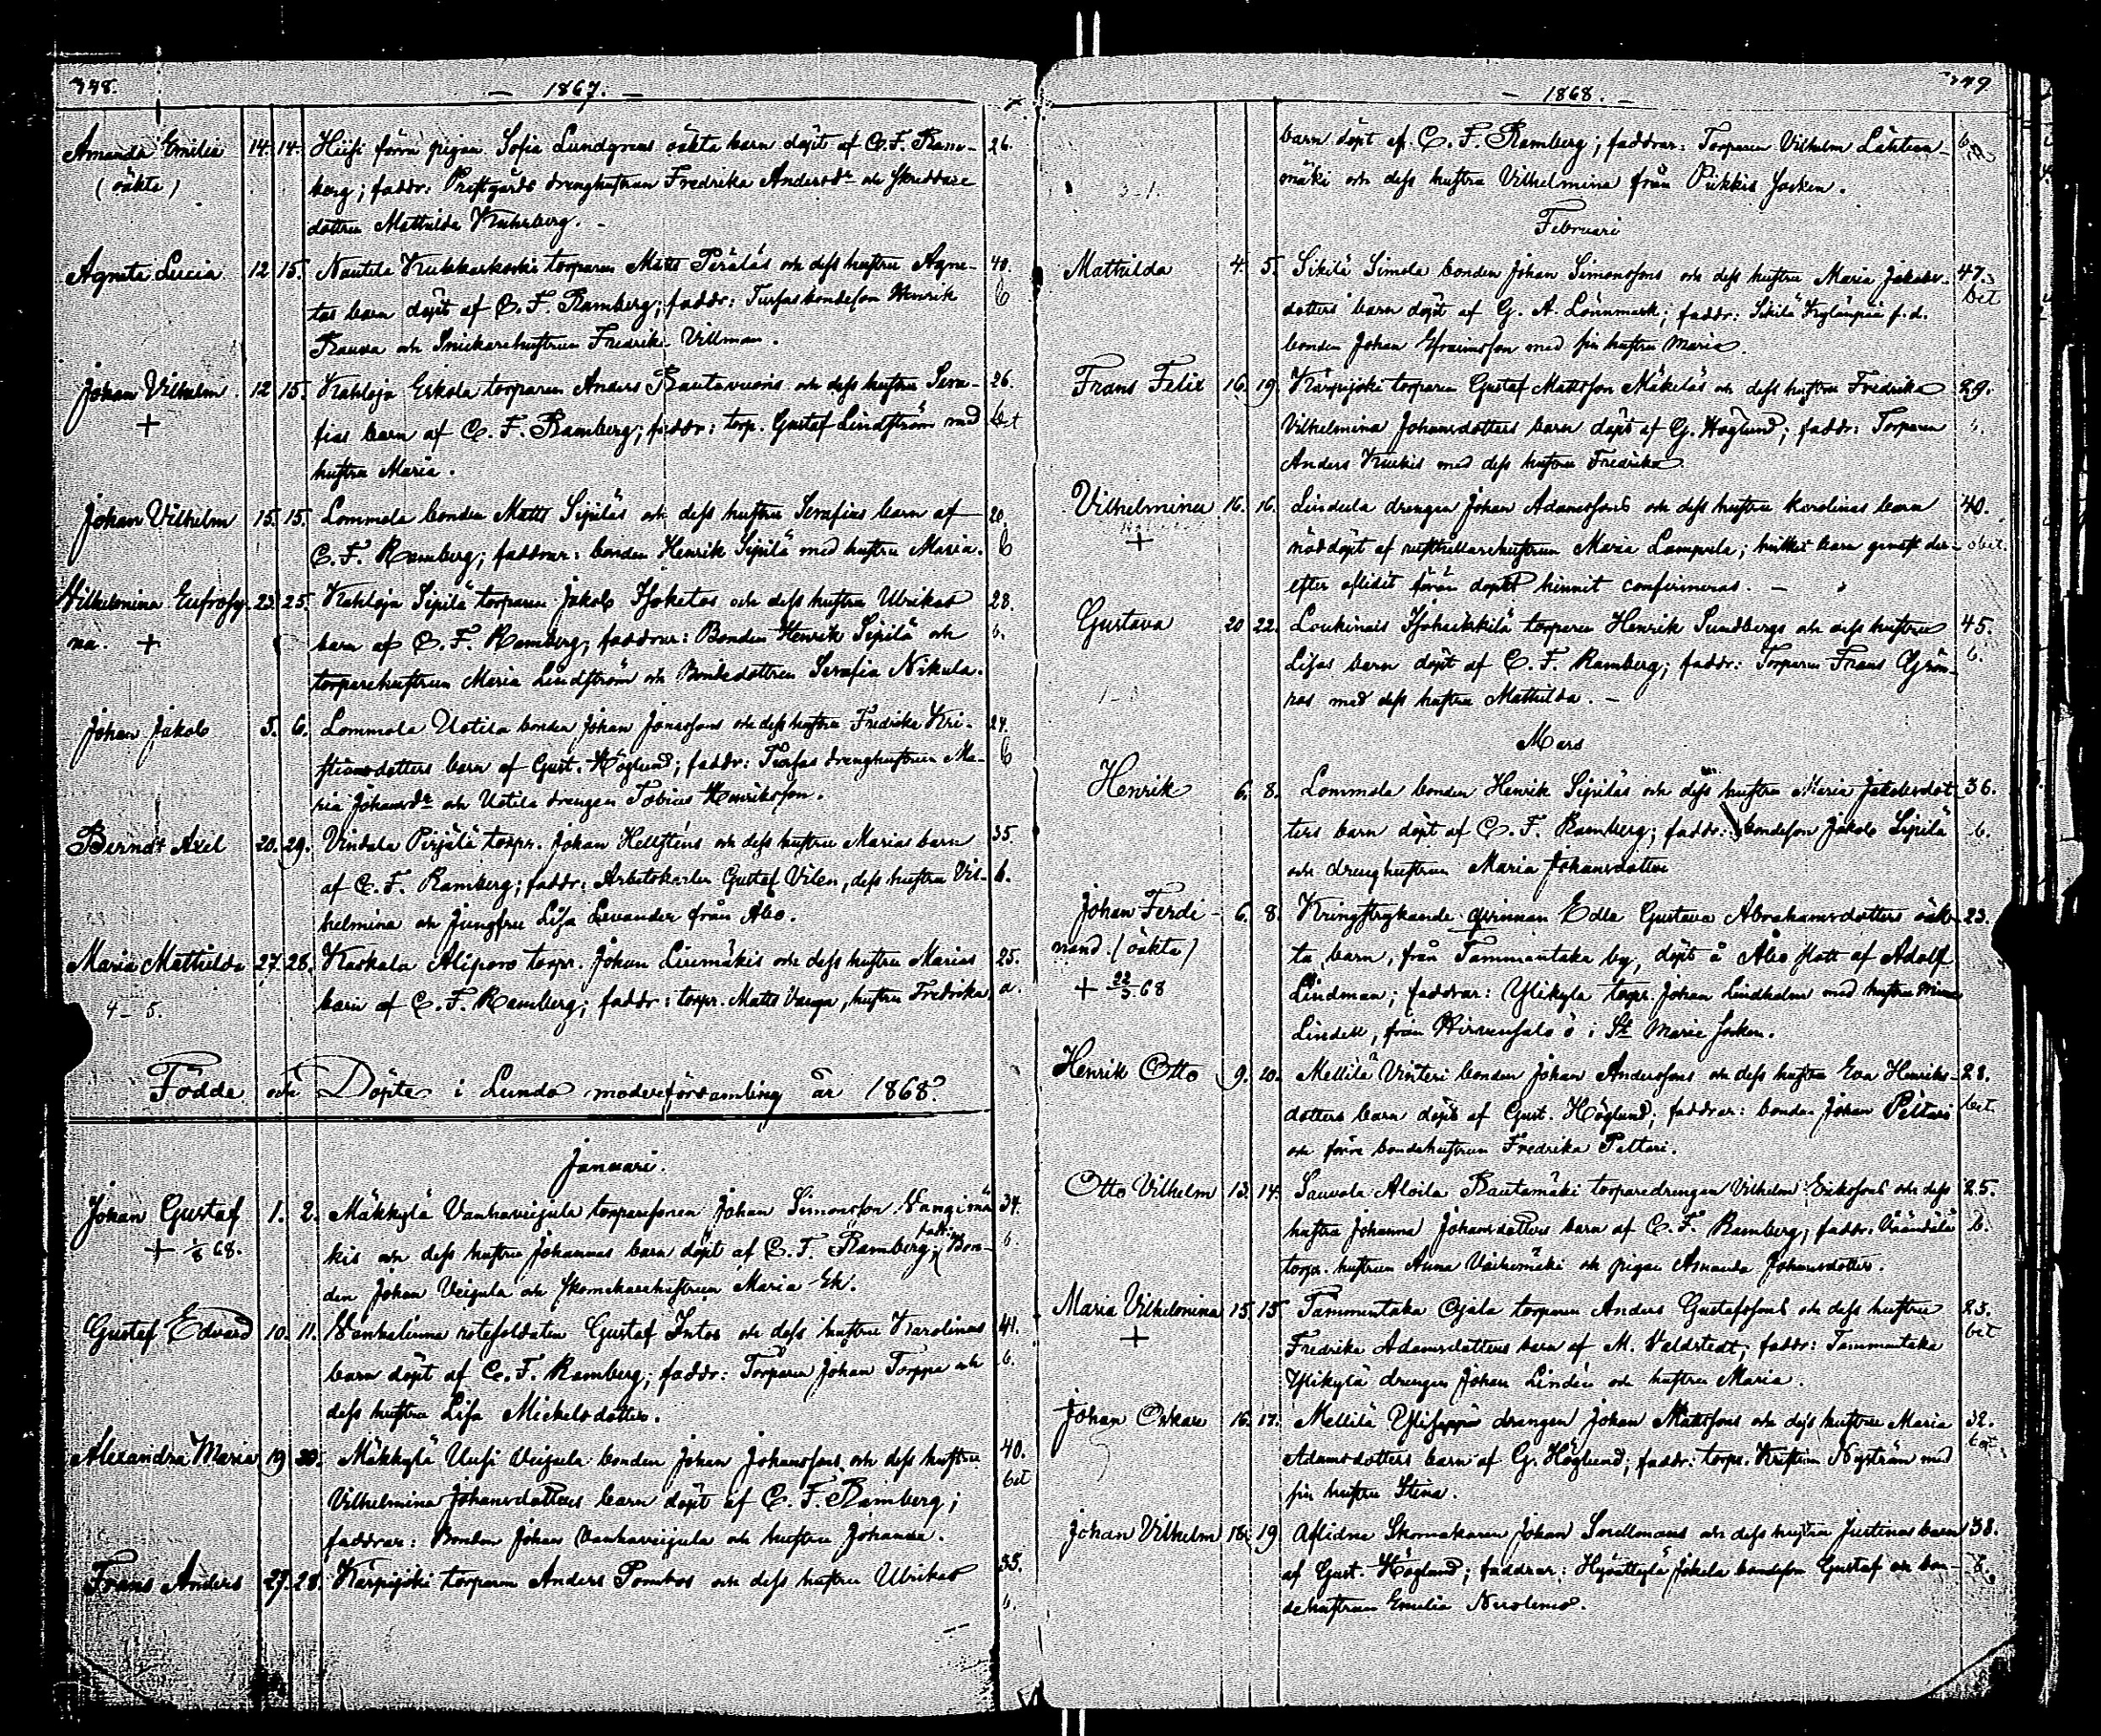 348.
— 1867. —
Amanda Emilia 14. 14. Hiisi förra pigan Sofia Lundgrens oäkta barn döpt af C. F. Ram- 26.
(oäkta) berg; faddr: Prestgårds drenghustrun Fredrika Andersdr och Skreddare
dottren Mathilda
Agneta Lucia 12 15. Nautela Kukkarkoski torparen Matts Perälás och dess hustru Agne- 40.
tas barn döpt af C. F. Ramberg; faddr: bondeson Henrik b
och Snickarehustrun Fredrika Villman.
Johan Vilhelm. 12 15. Kahloja Eskola torparen Anders Rautavuoris och dess hustru Sera- 26.
+ fias barn af C. F. Ramberg; faddr: torp. Gustaf Lindström med bet
hustru Maria.
Johan Vilhelm 15. 15. Lommola bonden Matts Sipiläs och dess hustru Serafias barn af 20.
C. F. Ramberg; faddrar: bonden Henrik Sipilä med hustru Maria. b
Vilhelmina Eufrosy- 23. 25. Kahloja Sipilä torparen Jakob och dess hustru Ulrikas 28.
na. + barn af C. F. Ramberg, faddrar: Bonden Henrik Sipilä och b.
torparehustrun Maria Lindström och Bondedottren Serafia Nikula.
Johan Jakob 5. 6. Lommola Uotila bonden Johan Jonassons och dess hustru Fredrika Kri- 24.
stiansdotters barn af Gust. Höglund; faddr: drenghustrun Ma- b
ria Johansdr och Uotila drengen Tobias Henriksson.
Berndt Axel 20. 29. Vindala Pirjälä torpr. Johan Hellsténs och dess hustru Marias barn 35.
af C. F. Ramberg; faddr: Arbetskarlen Gustaf Vilen, dess hustru Vil- b.
helmina och Jungfru Lisa Levander från Åbo.
Maria Mathilda 27. 28. Kaskala Alisporo torpr. Johan Liumäkis och dess hustru Marias 25.
barn af C. F. Ramberg; faddr: torpr. Matts hustru Fredrika. a.
4 – 5.
Födde och Döpte i Lundo moderförsamling år 1868.
Januari.
Johan Gustaf 1. 2. Mäkkylä Vanhaveijula torparesonen Johan Simonsson 34.
+ 1/8 68. kis och dess hustru Johannas barn döpt af C. F. Ramberg; fadr: Bon- b.
den Johan Veijula och Skomakarehustrun Maria Ek.
Gustaf Edvard 10. 11. Vanhalinna rotesoldaten Gustaf Intos och dess hustru Karolinas 41.
barn döpt af C. F. Ramberg; faddr: Torparen Johan Torppa och b.
dess hustru Lisa Mickelsdotter.
Alexandra Maria 19 20. Mäkkylä Uusi Veijula bonden Johan Johanssons och dess hustru 40.
Vilhelmina Johansdotters barn döpt af C. F. Ramberg; bet
faddrar: Bonden Johan Vanhaveijula och hustru Johanna.
Frans Anders 27. 28. Kärpijoki torparen Anders Pombos och dess hustru Ulrikas 35.
b.
349
— 1868. —
barn döpt af C. F. Ramberg; faddrar: Torparen Vilhelm Lähteen- b
mäki och dess hustru Vilhelmina från Piikkis Socken.
Februari
Mathilda 4. 5. Sikilä Simola bonden Johan Simonssons och dess hustru Maria Jakobs- 47.
dotters barn döpt af G. A. Lönnmark; faddr: Sikilä f.d. bet
bonden Johan Efraimsson med sin hustru Maria.
Frans Felix 16. 19. Kärpijoki torparen Gustaf Mattsson Mäkeläs och dess hustru Fredrika 29.
Vilhelmina Johansdotters barn döpt af G. Höglund; faddr: Torparen b.
Anders med dess hustru Fredrika
Vilhelmina 16. 16. Lindula drengen Johan Adamssons och dess hustru Karolinas barn 40.
+ nöddöpt af rusthållarehustrun Maria Lampela; hvilket barn genast der- obet.
efter aflidit förän dopet hinnit confirmeras. —
Gustava 20 22. Loukinais torparen Henrik Sundbergs och dess hustru 45.
Lisas barn döpt af C. F. Ramberg; faddr: Torparen Frans Grön- b.
roos med dess hustru Mathilda. —
Mars
Henrik 6. 8. Lommola bonden Henrik Sipiläs och dess hustru Maria Jakobsdot- 36.
ters barn döpt af C. F. Ramberg; faddr: bondeson Jakob Sipilä b.
och drenghustrun Maria Johansdotter
Johan Ferdi- 6. 8. Kringstrykande qvinnan Edla Gustava Abrahamsdotters oäk- 23.
nand (oäkta) ta barn, från Tammentaka by, döpt å Åbo slott af Adolf
+ 22/3 68 Lindman; faddrar: Ylikylä torpr. Johan Lindholm med hustru Mina
Lindell, från Hirvensalo ö i St Marie Socken.
Henrik Otto 9. 20. Mellilä Vinteri bonden Johan Anderssons och dess hustru Eva Henriks- 28.
dotters barn döpt af Gust. Höglund; faddrar: bonden Johan Peltari bet.
och förra bondehustrun Fredrika Pettari.
Otto Vilhelm 13. 14. Sauvala Aloila Rautamäki torparedrengen Vilhelm Erikssons och dess 25.
hustru Johanna Johansdotters barn af C. F. Ramberg; faddr: Väändälä b.
torpr. hustrun Anna och pigan Amanda Johansdotter.
Maria Vilhelmina 15. 15 Tammentaka Ojala torparen Anders Gustafssons och dess hustru 23.
+ Fredrika Adamsdotters barn af M. Valdstedt; faddr: Tammentaka bet
Ylikylä drengen Johan Lindén och hustru Maria.
Johan Oskar 16. 17. Mellilä drengen Johan Mattssons och dess hustru Maria 32.
Adamsdotters barn af G. Höglund; faddr: torpr. Kristian Nyström med bet.
sin hustru Stina.
Johan Vilhelm 18. 19 Aflidne Skomakaren Johan Snellmans och dess hustru Justinas barn 38.
af Gust. Höglund; faddrar: Jokela bondeson Gustaf och bon- b.
dehustrun Emilia